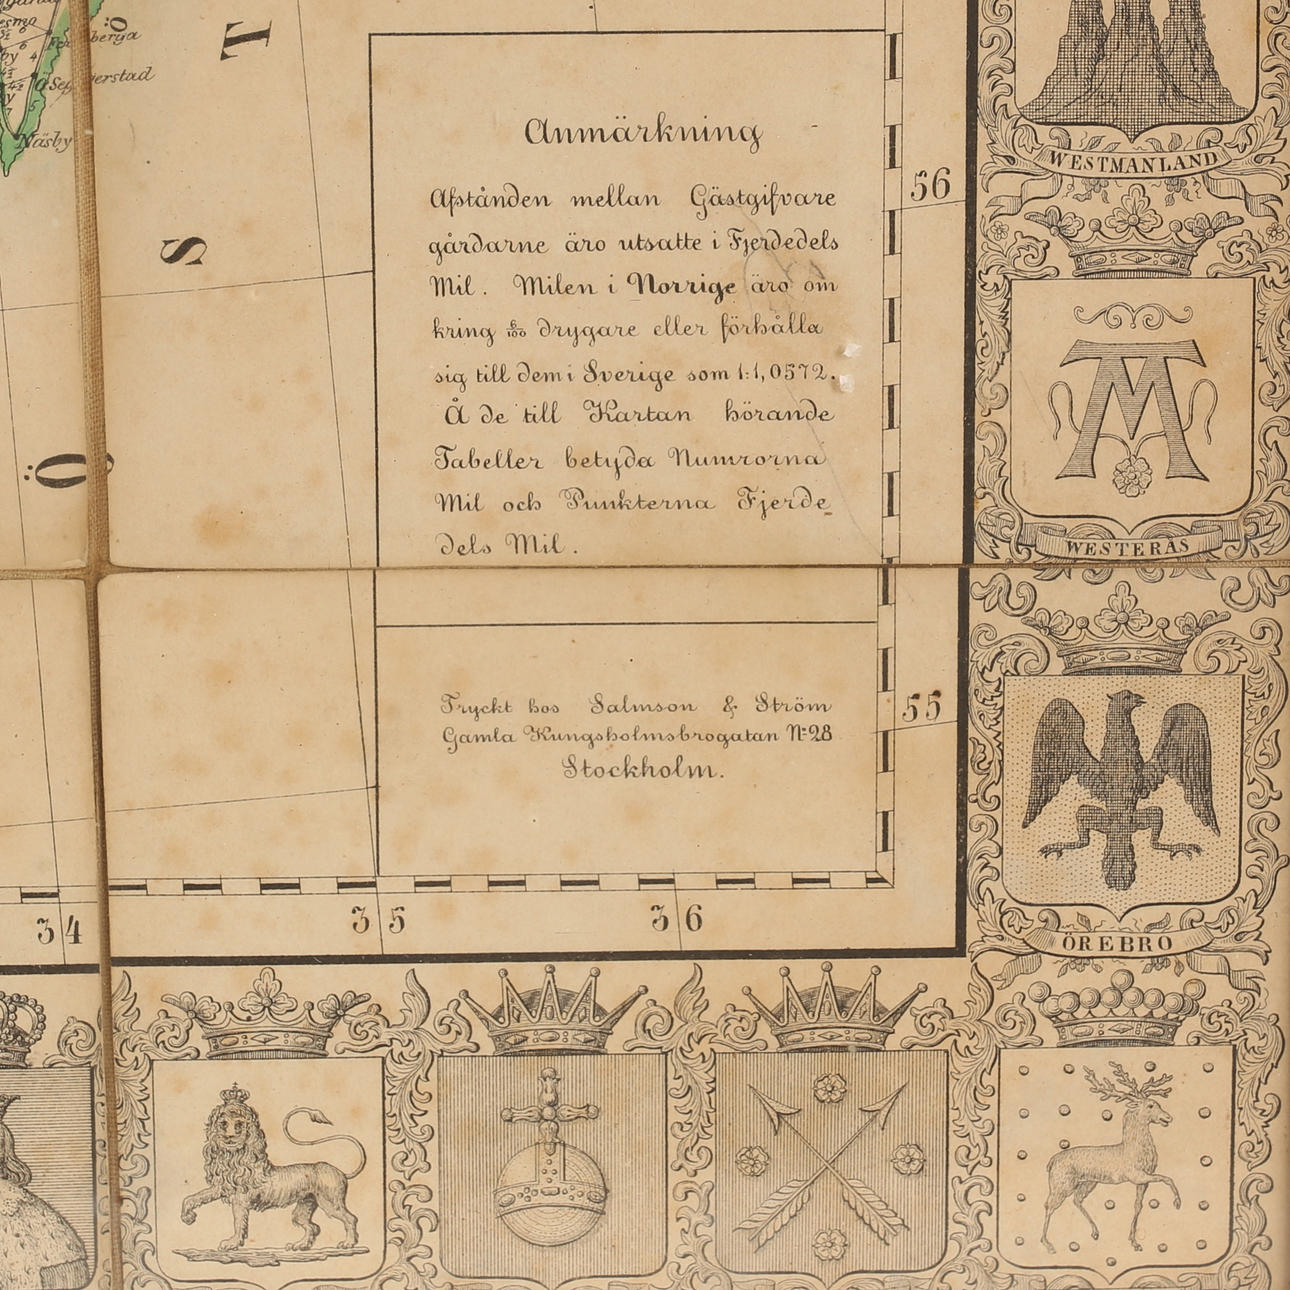 T
S
Ö
ö
Näsby
Anmärkning
Afstånden mellan Gästgifvare
gårdarne äro utsatte i Fjerdedels
Mil. Milen i Norrige äro om
kring 6/100 drygare eller förhålla
sig till dem i Sverige som 1:1,0572.
Å de till Kartan hörande
Tabeller betyda Numrorna
Mil och Punkterna Fjerde
dels Mil.
Tryckt hos Salmson & Ström
Gamla Kungsholmsbrogatan No 28
Stockholm.
56
55
34
35
36
WESTMANLAND
WESTERÅS
ÖREBRO